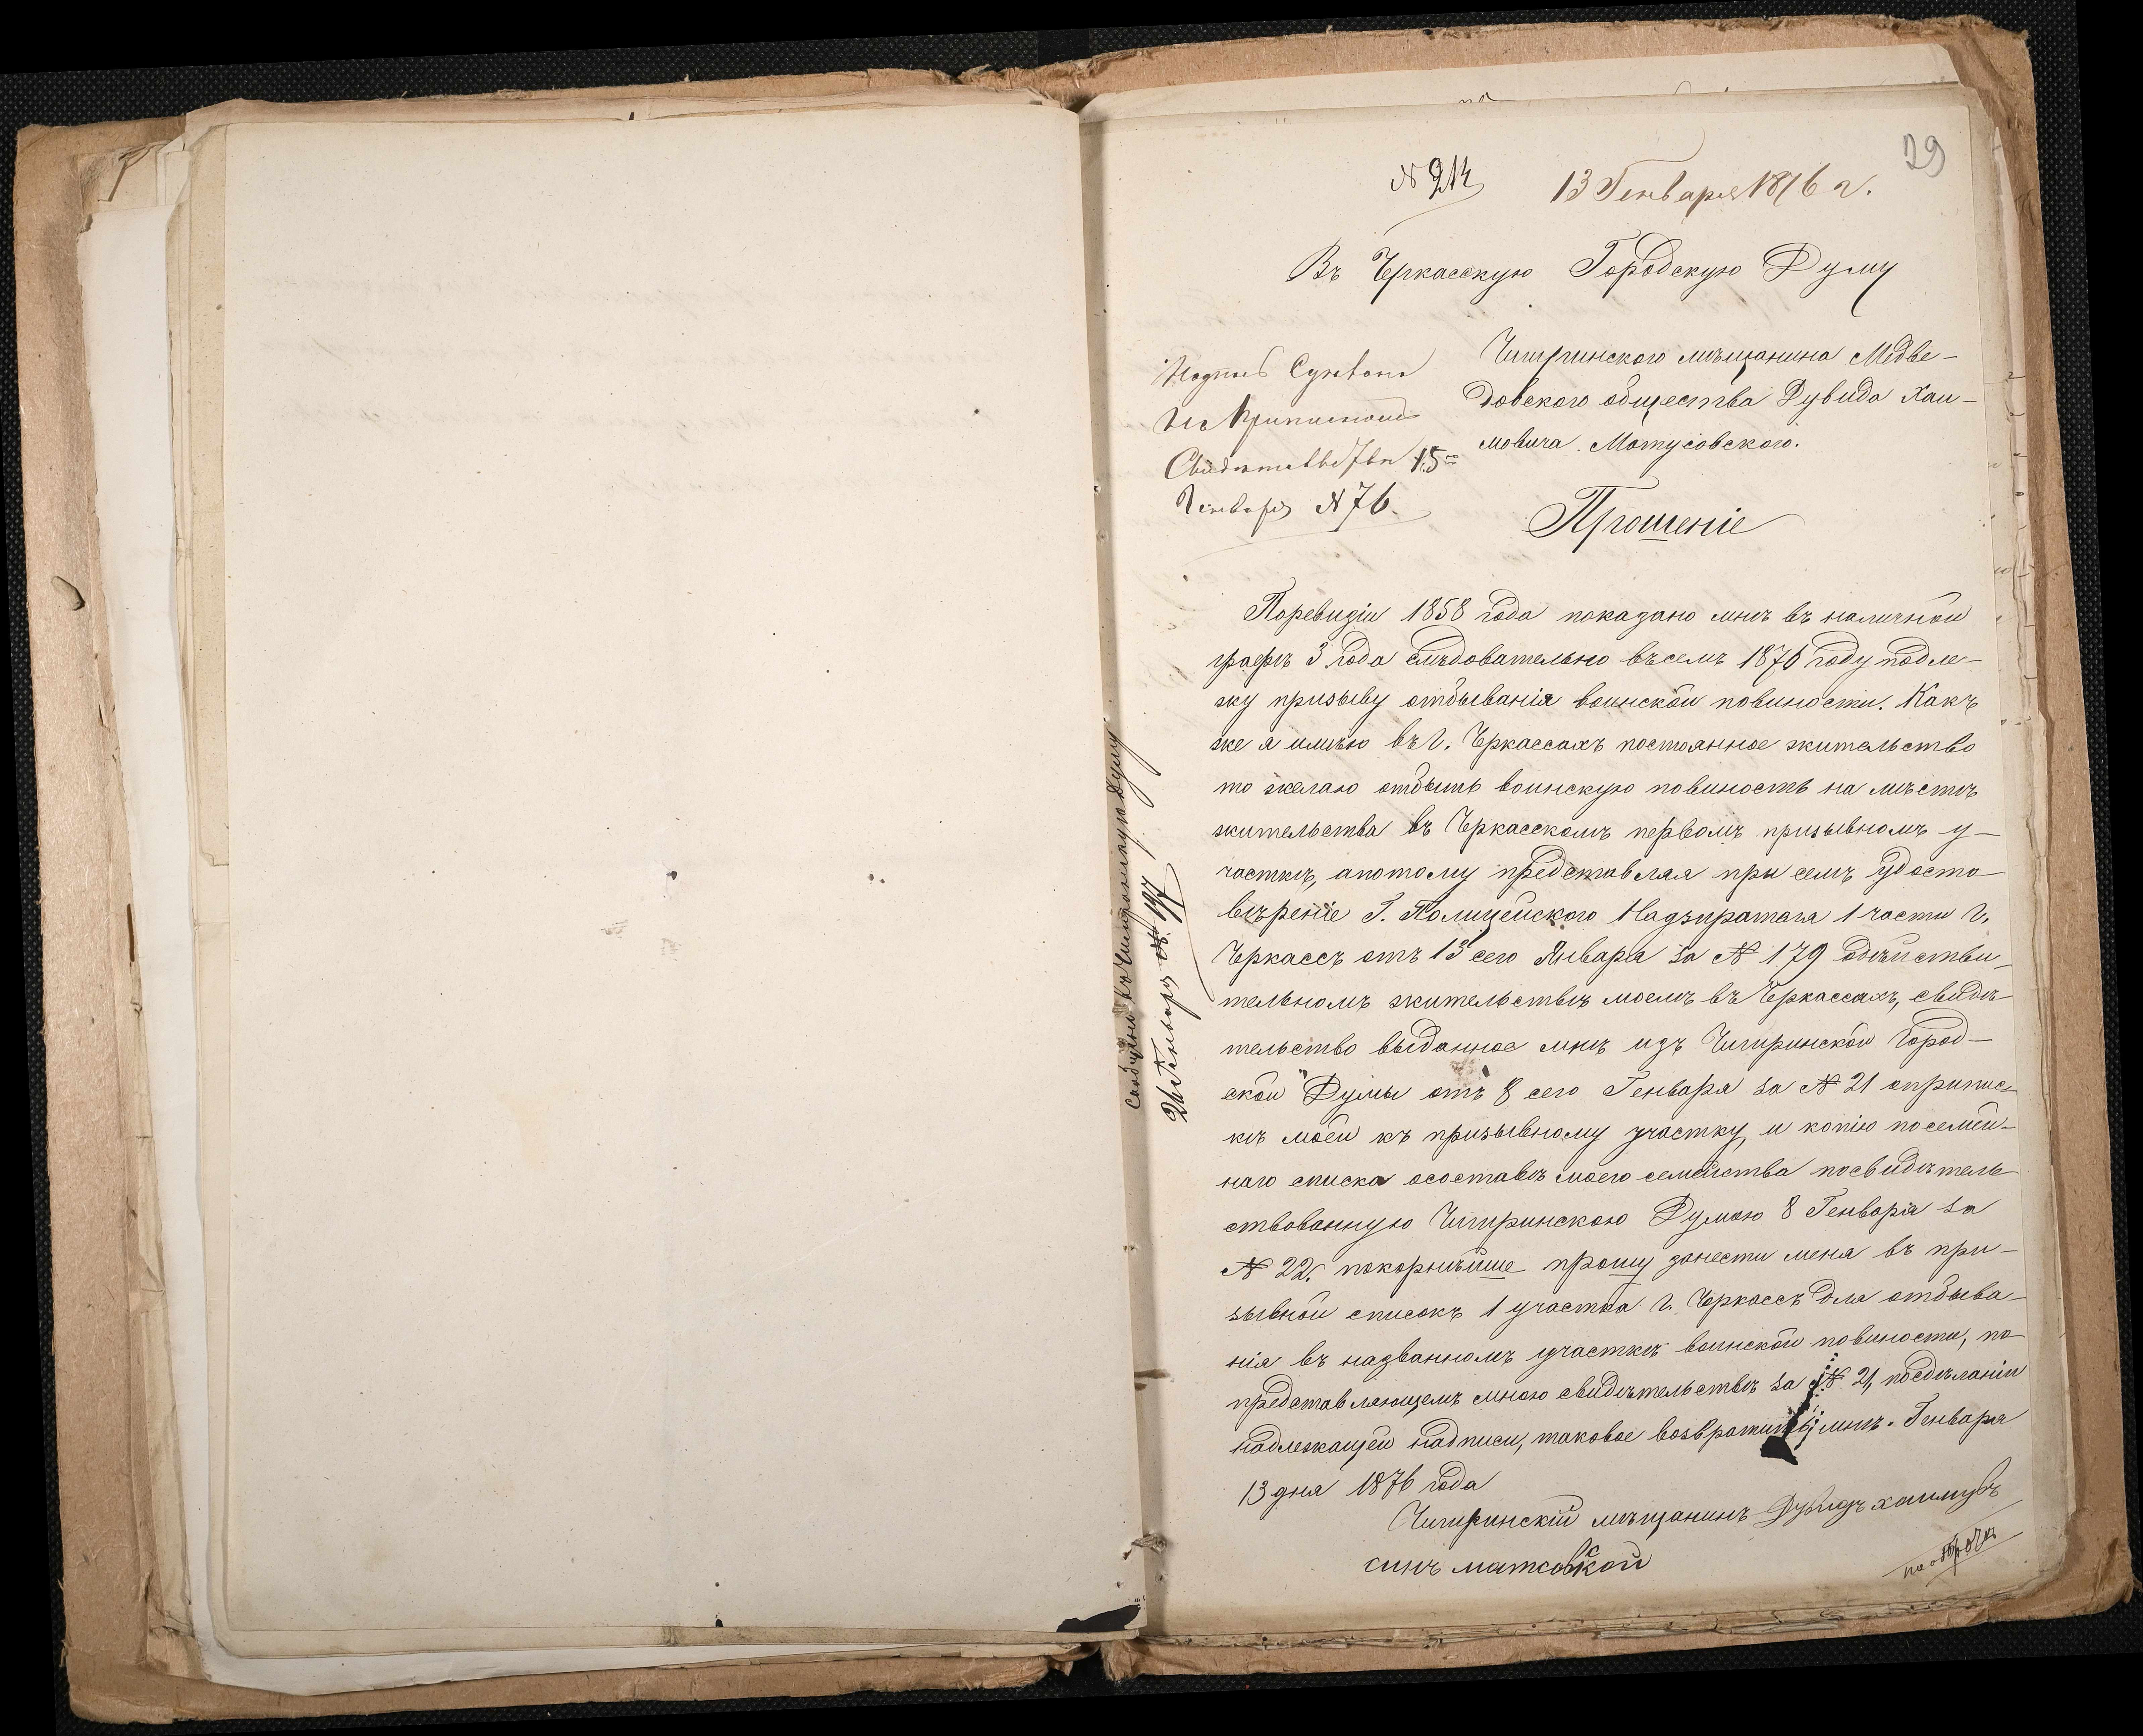 29
№ 214
13 Генваря 1876 г.
Въ Черкасскую Городскую Думу
Чигиринскаго мѣщанина Медве-
довскаго общества Дувида Хаи-
мовича Мотусовскаго.
Надпись Сдѣлана
на Приписномъ
Свидѣтельствѣ 15го
Генваря № 76.
Прошеніе
Поревизіи 1858 года показано мнѣ въ наличной
графѣ 3 года слѣдовательно въсемъ 1876 году подле-
жу призыву отбыванія воинской повиности. Какъ
же я имѣю въ г. Черкассахъ постоянное жительство
то желаю отбыть воинскую повиность на мѣстѣ
жительства въ Черкасскомъ первомъ призывномъ у-
часткѣ, апотому представляя при семъ удосто-
вѣреніе Г. Полицейского Надзирателя 1 части г.
Черкассъ отъ 13 сего Января за № 179 одѣйстви-
тельномъ жительствѣ моемъ въ Черкассахъ, свидѣ-
тельство выданное мнѣ изъ Чигиринской Город-
ской Думы отъ 8 сего Генваря за № 21 оприпис-
кѣ моей къ призывному участку и копію посемей-
наго списка осоставѣ моего семейства посвидѣтель-
ствованную Чигиринскою Думою 8 Генваря за
№ 22. покорнѣйше прошу занести меня въ при-
зывной списокъ 1 участка г. Черкассъ для отбыва-
нія въ названномъ участкѣ воинской повиности, по
представляющемъ мною свидѣтельствѣ за № 21, посдѣланіи
надлежащей надписи, таковое возвратить мнѣ. Генваря
13 дня 1876 года
Чигиринскій мѣщанинъ Дувидъ хаимувъ
синъ матсовской
на оборотѣ
Сообщени въ Чигиринскую Думу
26 Генваря № 197